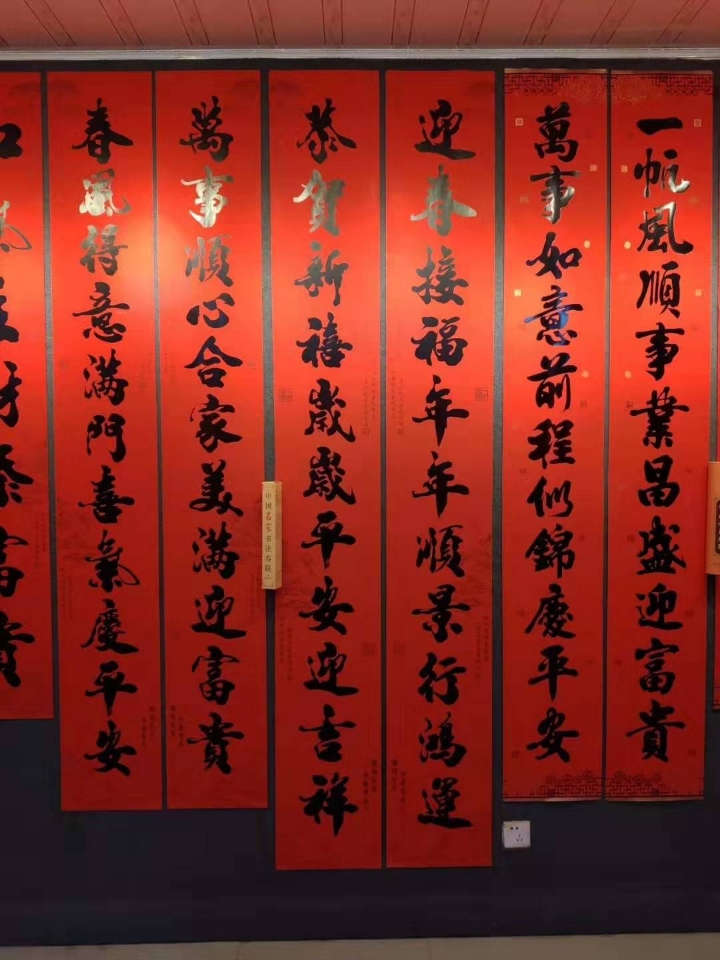 一帆風順事業昌盛迎富貴
萬事如意前程似錦慶平安
迎春接福年年順景行鴻運
恭賀新禧歲歲平安迎吉祥
中国名家书法春联
萬事順心合家美滿迎富貴
春風得意滿門喜氣慶平安
財添富貴